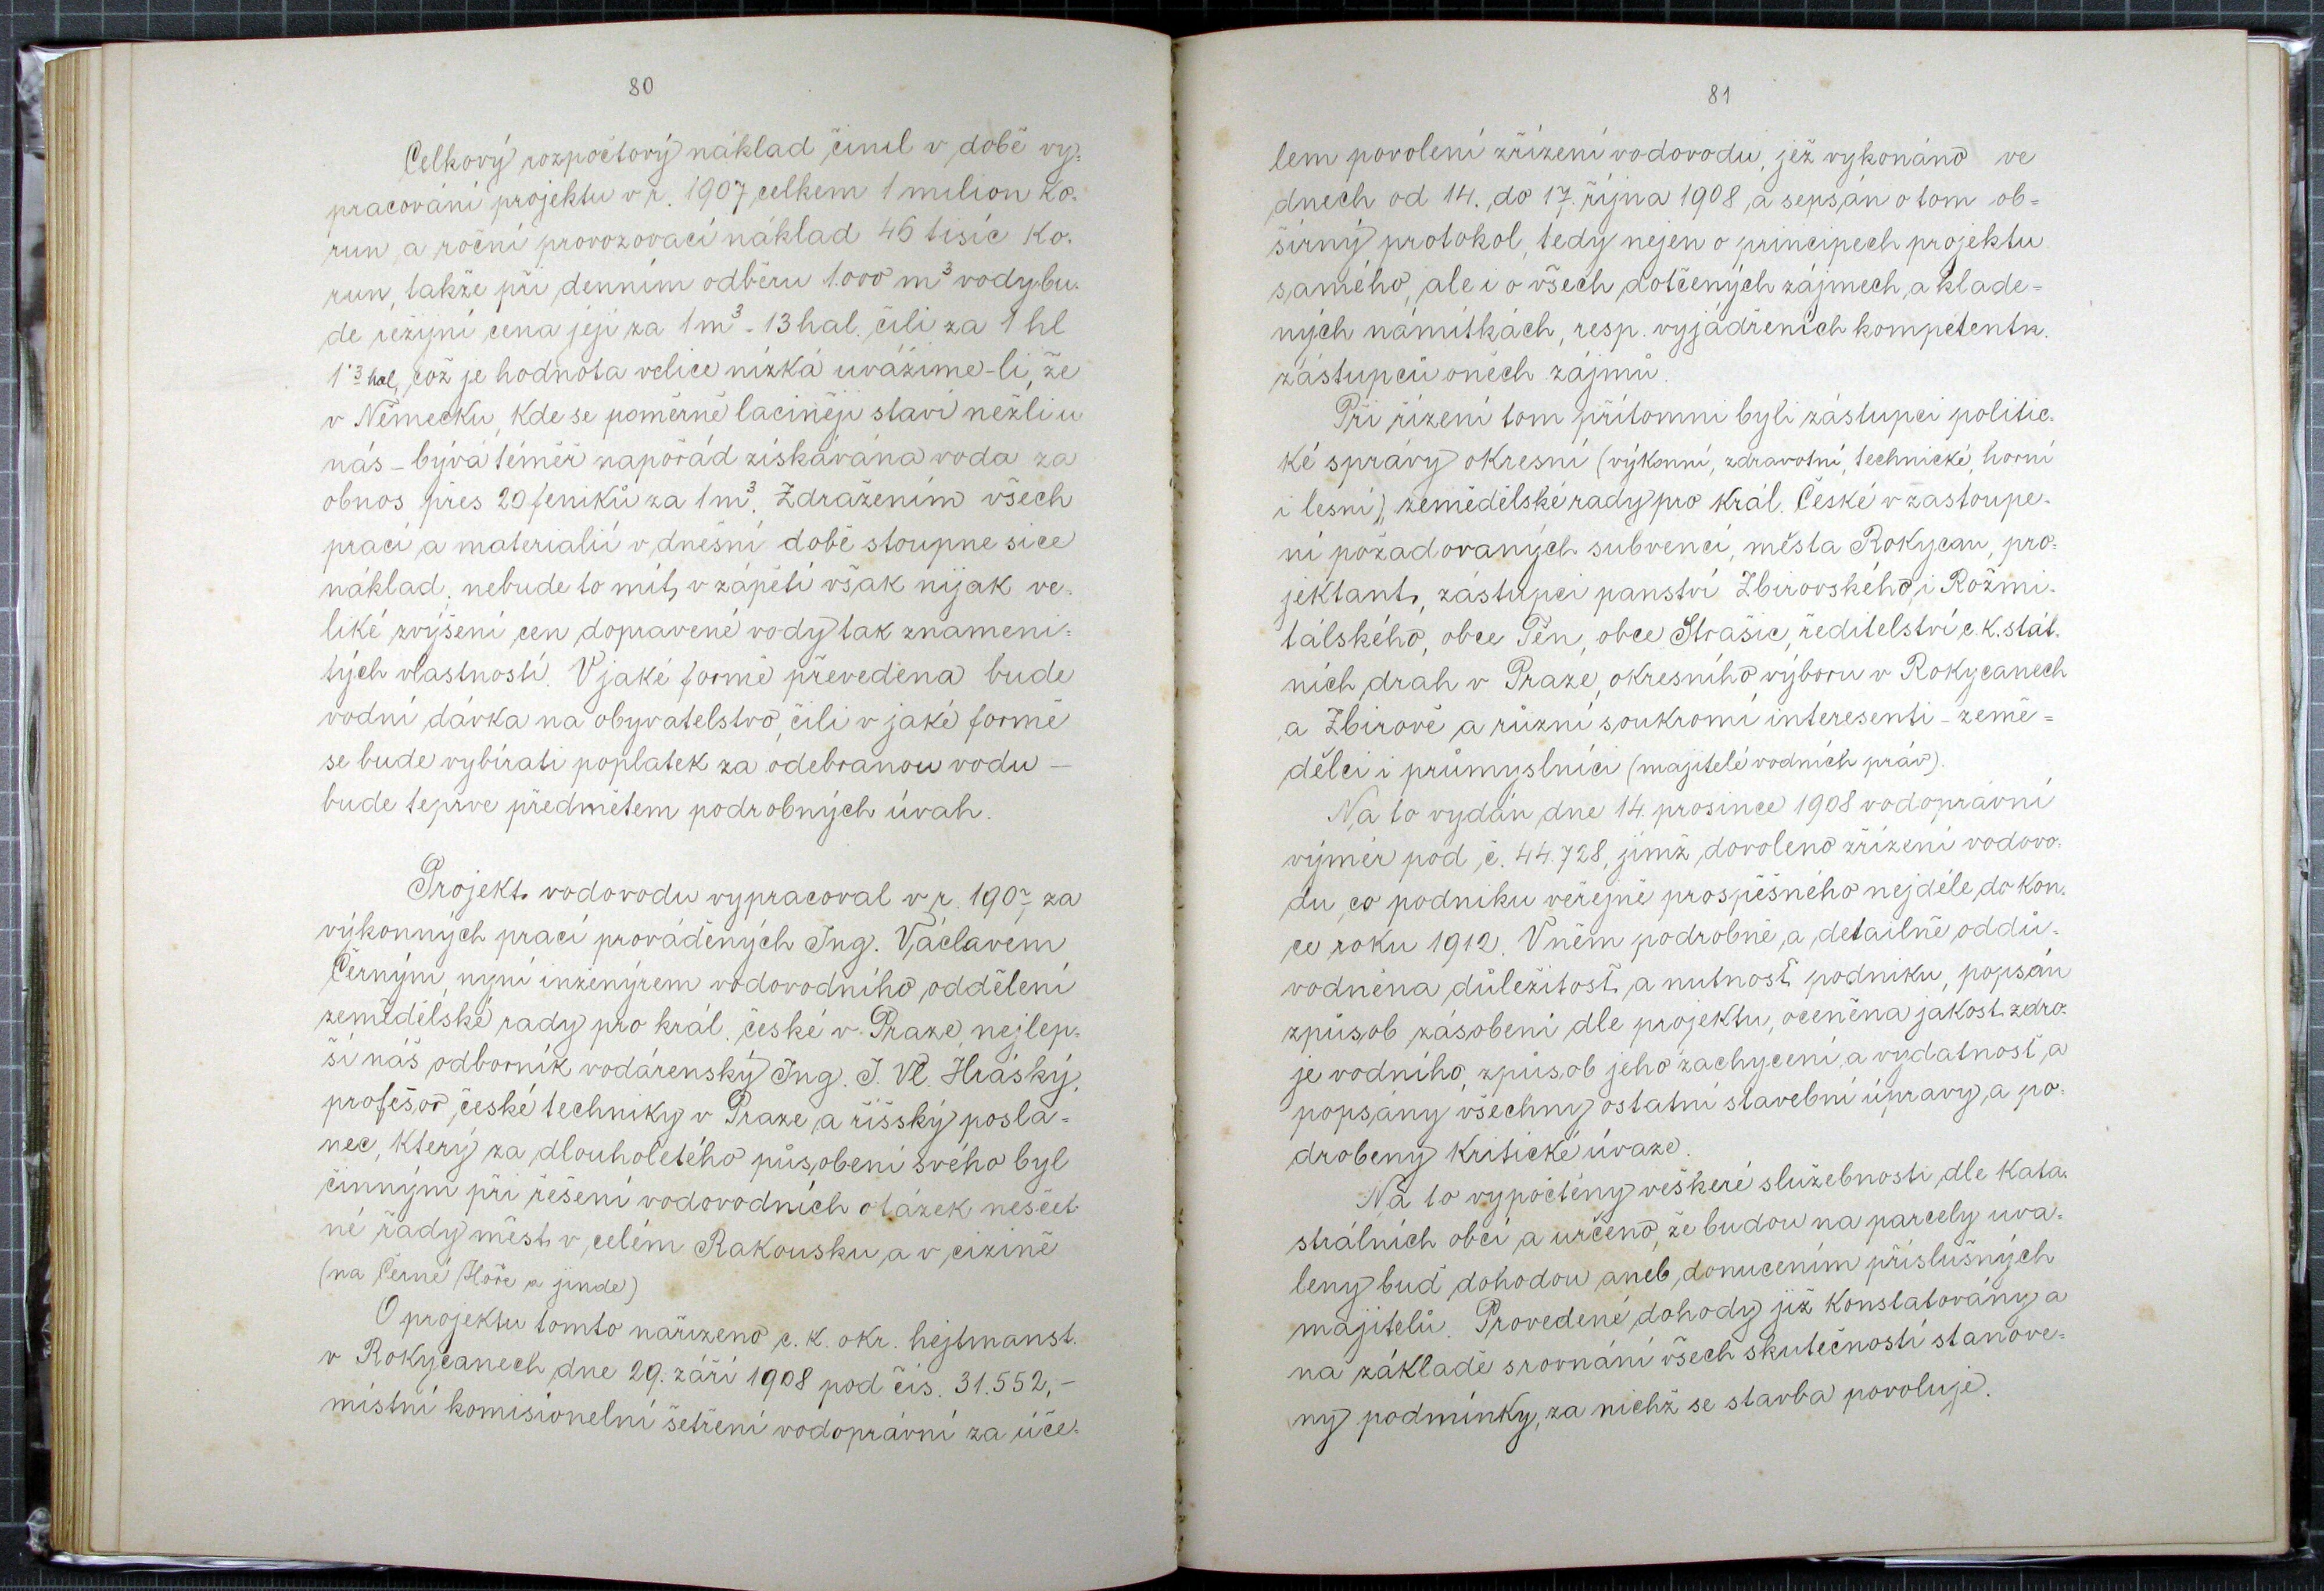 80
Celkový rozpočtový náklad činil v době vy=
pracování projektu v r. 1907 celkem 1 milion ko-
run a roční provozovací náklad 46 tisíc ko-
run, takže při denním odběru 1.000 m³ vody bu-
de režijní cena její za 1 m³ - 13 hal. čili za 1 hl
1·3 hal, což je hodnota velice nízká uvážíme-li, že
v Německu, kde se poměrně laciněji staví nežli u
nás - bývá téměř napořád získávána voda za
obnos přes 20 feniků za 1 m³. Zdražením všech
prací a materialií v dnešní době stoupne sice
náklad, nebude to mít v zápětí však nijak ve-
liké zvýšení cen dopravené vody tak znameni-
tých vlastností. V jaké formě převedena bude
vodní dávka na obyvatelstvo, čili v jaké formě
se bude vybírati poplatek za odebranou vodu —
bude teprve předmětem podrobných úvah.
Projekt vodovodu vypracoval v r. 1907 za
výkonných prací prováděných Ing. Václavem
Černým, nyní inženýrem vodovodního oddělení
zemědělské rady pro král. české v Praze, nejlep-
ší náš odborník vodárenský Ing. J. Vl. Hráský,
profešor české techniky v Praze a říšský posla-
nec, který za dlouholetého působení svého byl
činným při řešení vodovodních otázek nesčet-
né řady měst v celém Rakousku a v cizině
(na Černé Hoře a jinde)
O projektu tomto nařízeno c. k. okr. hejtmanst.
v Rokycanech dne 29. září 1908 pod čís. 31.552,-
místní komisionelní šetření vodoprávní za úče-
81
lem povolení zřízení vodovodu, jež vykonáno ve
dnech od 14. do 17. října 1908 a sepsán o tom ob-
šírný protokol, tedy nejen o principech projektu
samého, ale i o všech dotčených zájmech a klade-
ných námitkách, resp. vyjádřeních kompetentn.
zástupců oněch zájmů.
Při řízení tom přítomni byli zástupci politic-
ké správy okresní (výkonní, zdravotní, technické, horní
i lesní), zemědělské rady pro král. České v zastoupe-
ní požadovaných subvencí, města Rokycan, pro-
jektant, zástupci panství Zbirovského i Rožmi-
tálského, obce Těn, obce Strašic, ředitelství c. k. stát-
ních drah v Praze, okresního výboru v Rokycanech
a Zbirově a různí soukromí interesenti - země-
dělci i průmyslníci (majitelé vodních práv).
Na to vydán dne 14 prosince 1908 vodoprávní
výměr pod č. 44.728, jímž dovoleno zřízení vodovo-
du co podniku veřejně prospěšného nejdéle do kon-
ce roku 1912. V něm podrobně a detailně oddů-
vodněna důležitost a nutnost podniku, popsán
způsob zásobení dle projektu, oceněna jakost zdro-
je vodního, způsob jeho zachycení a vydatnosť a
popsány všechny ostatní stavební úpravy a po-
drobeny kritické úvaze.
Na to vypočteny veškeré služebnosti dle kata-
strálních obcí a určeno, že budou na parcely uva-
leny buď dohodou aneb donucením příslušných
majitelů. Provedené dohody již konstatovány a
na základě srovnání všech skutečností stanove-
ny podmínky, za nichž se stavba povoluje.